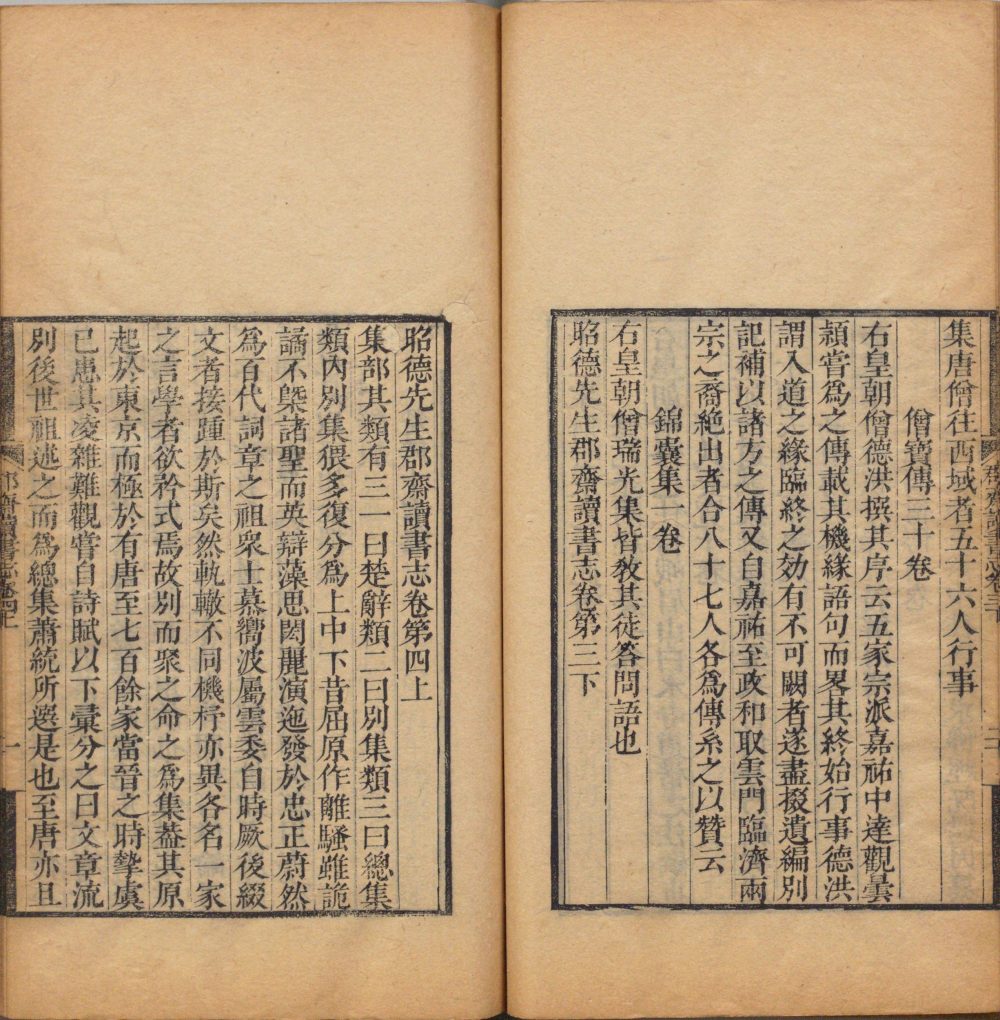 集唐僧往西域者五十六人行事
僧寶傳三十卷
右皇朝僧德洪撰其序云五家宗派嘉祐中達觀曇
頴嘗爲之傳載其機緣語句而畧其終始行事德洪
謂入道之緣臨終之効有不可闕者遂盡掇遺編別
記補以諸方之傳又自嘉祐至政和取雲門臨濟兩
宗之裔絶出者合八十七人各爲傳系之以贊云
錦囊集一卷
右皇朝僧瑞光集皆敎其徒答問語也
昭德先生郡齋讀書志卷第三下
昭德先生郡齋讀書志卷第四上
集部其類有三一曰楚辭類二曰別集類三曰總集
類內別集猥多復分爲上中下昔屈原作離騷雖詭
譎不槩諸聖而英辯藻思閎麗演迤發於忠正蔚然
爲百代詞章之祖衆士慕嚮波屬雲委自時厥後綴
文者接踵於斯矣然軌轍不同機杼亦異各名一家
之言學者欲矜式焉故別而聚之命之爲集葢其原
起於東京而極於有唐至七百餘家當晉之時摯虞
已患其凌雜難觀嘗自詩賦以下彙分之曰文章流
別後世祖述之而爲總集蕭統所選是也至唐亦且
郡齋讀書志卷四上
一